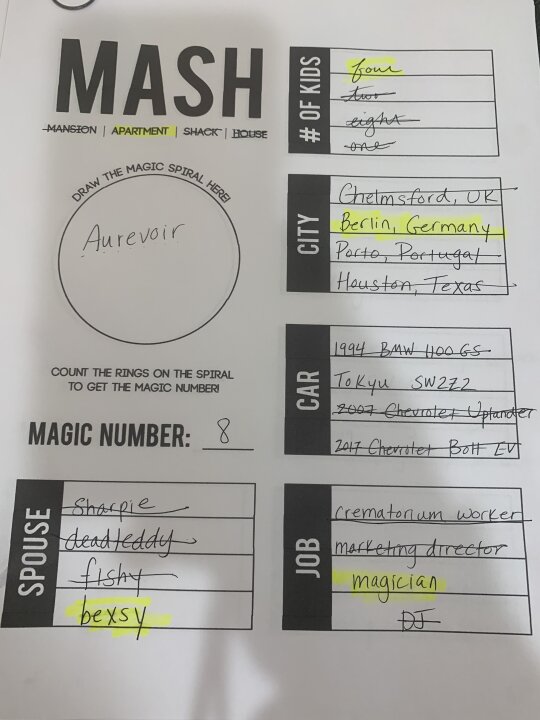 MASH
MANSION | APARTMENT | SHACK | HOUSE
DRAW THE MAGIC SPIRAL HERE!
Aurevoir
COUNT THE RINGS ON THE SPIRAL
TO GET THE MAGIC NUMBER!
MAGIC NUMBER: 8
# OF KIDS
four
two
eight
one
CITY
Chelmsford, UK
Berlin, Germany
Porto, Portugal
Houston, Texas
CAR
1994 BMW 1100 GS
Tokyu SW2Z2
2007 Chevrolet Uplander
2017 Chevrolet Bolt EV
SPOUSE
Sharpie
deadteddy
fishy
bexsy
JOB
crematorium worker
marketing director
magician
DJ